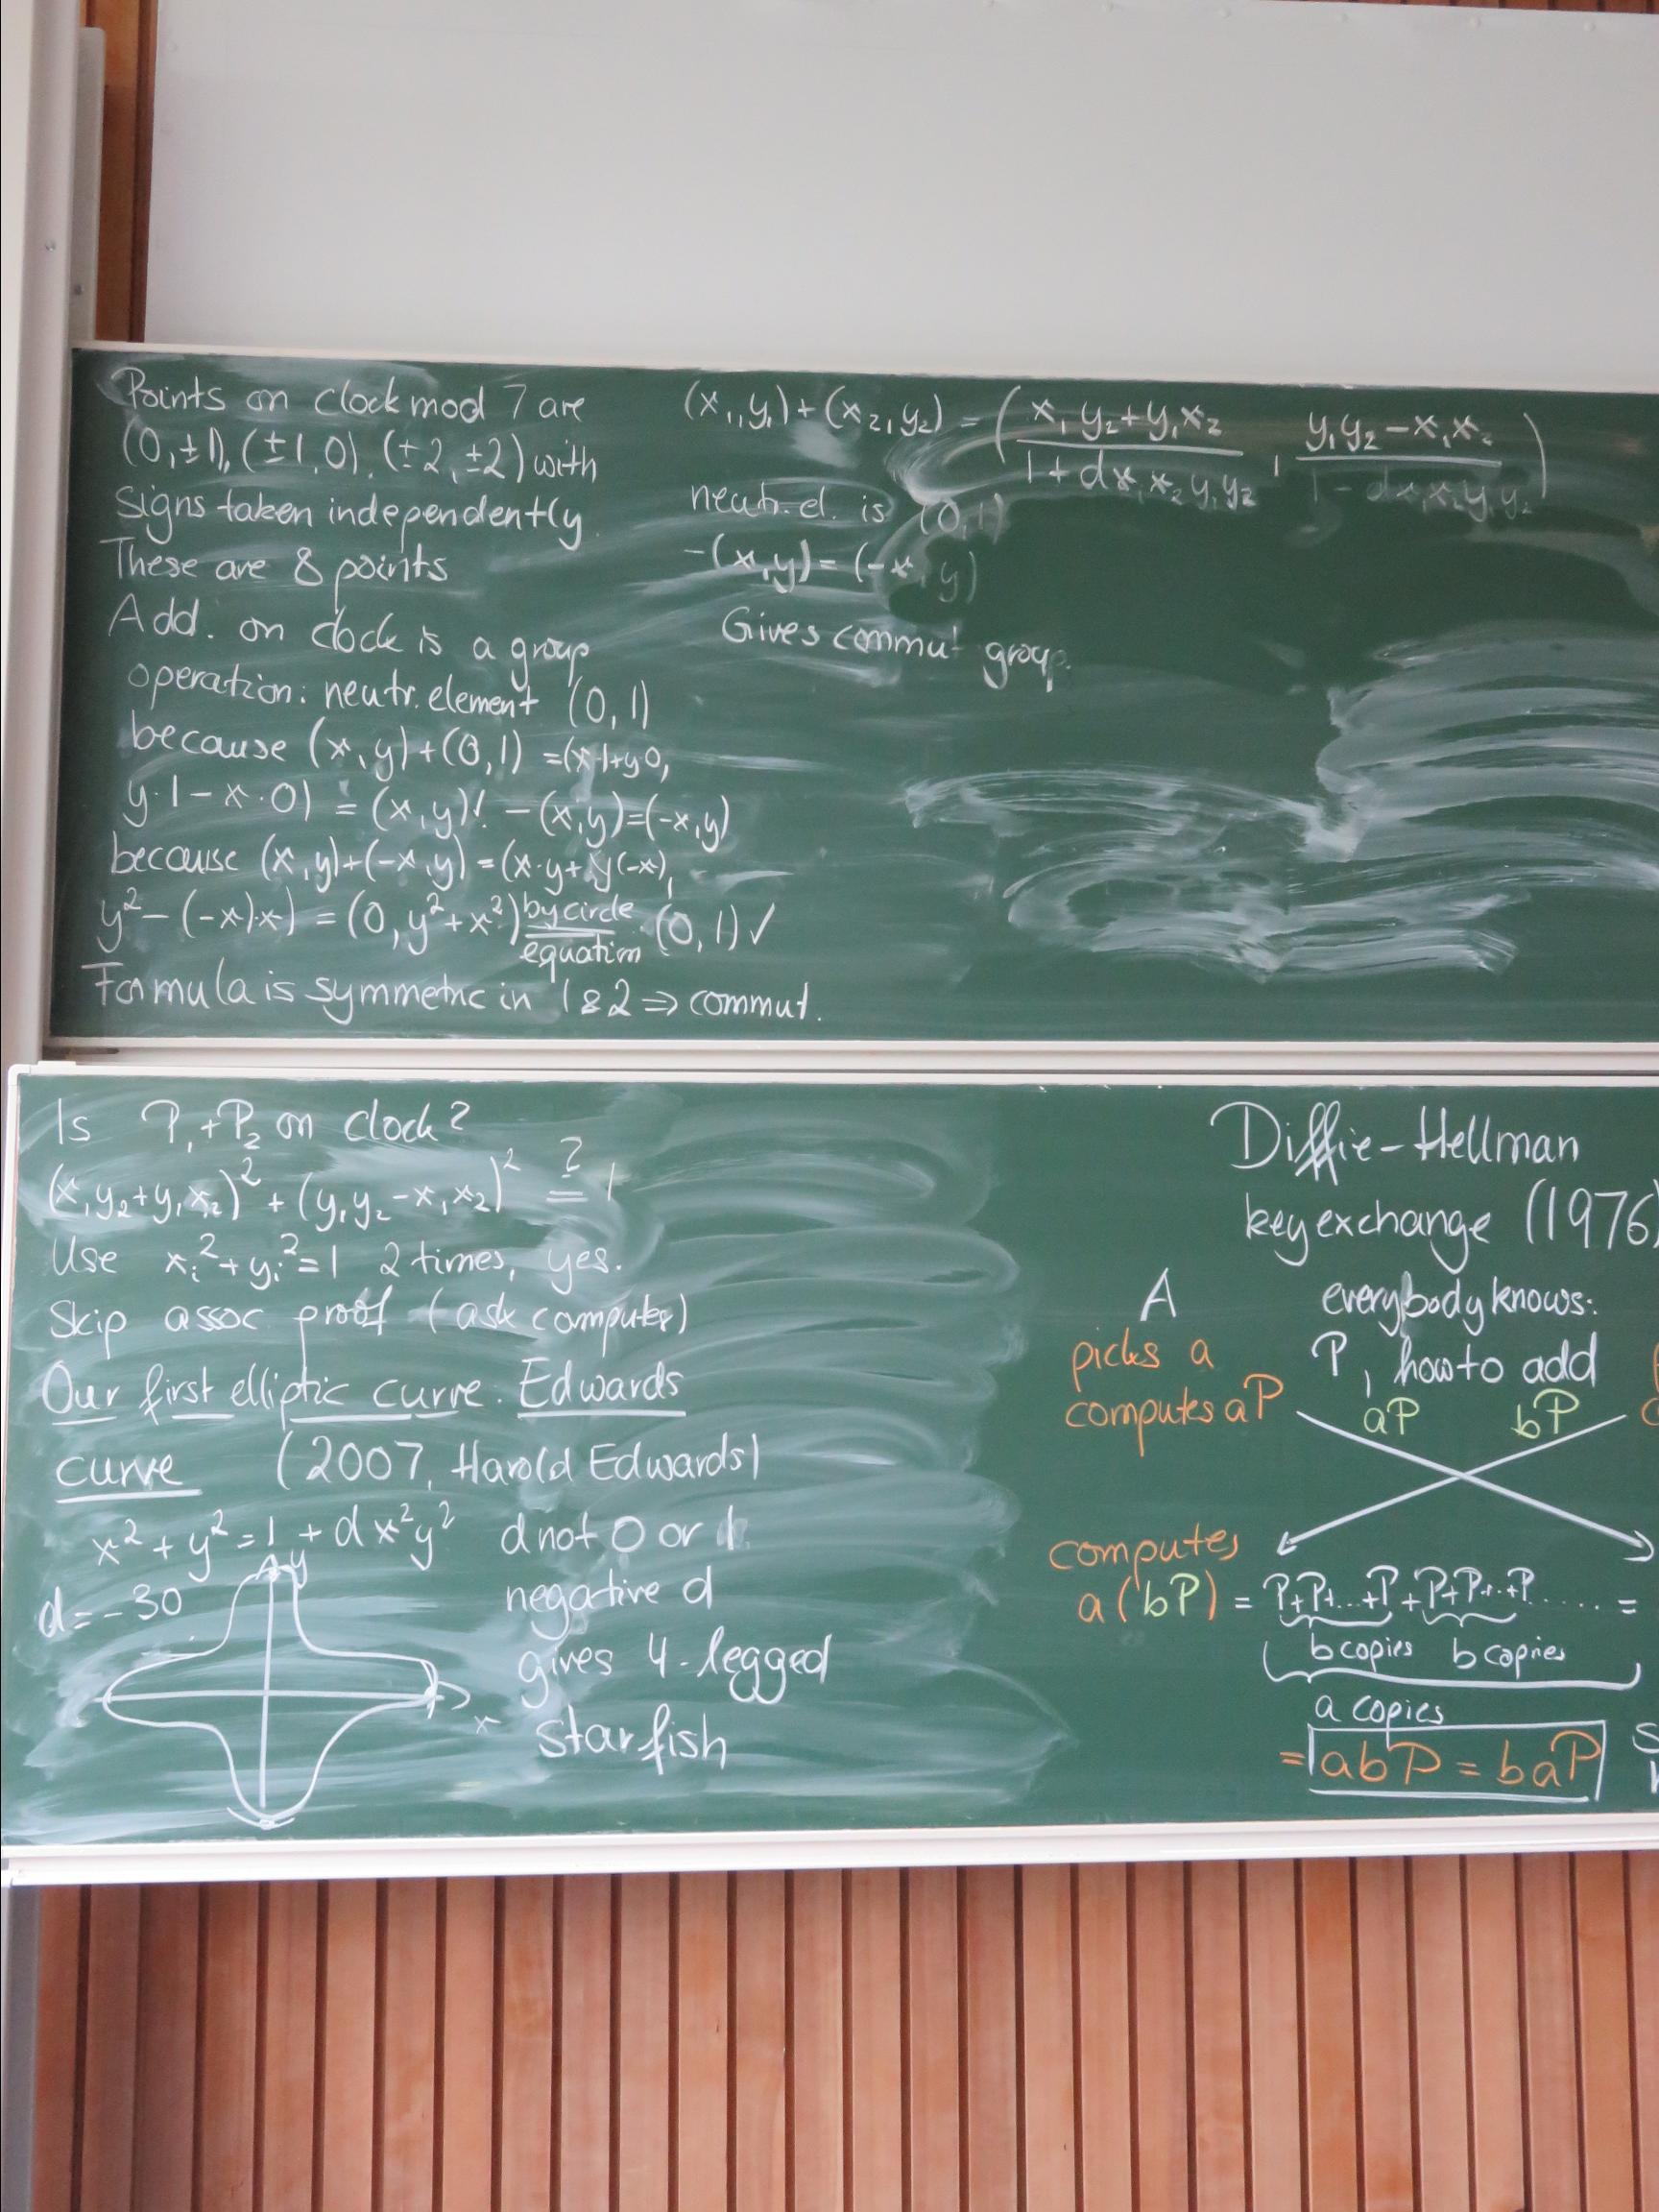 Points on clock mod 7 are
(0,±1), (±1,0), (±2,±2) with
signs taken independently
These are 8 points
Add. on clock is a group
operation: neutr. element (0,1)
because (x,y)+(0,1) =(x·1+y·0,
y·1-x·0) = (x,y)! -(x,y)=(-x,y)
because (x,y)+(-x,y) = (x·y+y(-x),
y²-(-x)·x) = (0,y²+x²) by circle equation (0,1) ✓
Formula is symmetric in 1&2 ⇒ commut.
(x₁,y₁)+(x₂,y₂) = ( (x₁y₂+y₁x₂)/(1+dx₁x₂y₁y₂) , (y₁y₂-x₁x₂)/(1-dx₁x₂y₁y₂) )
neutr. el. is (0,1)
-(x,y) = (-x,y)
Gives commut group.
Is P₁+P₂ on clock?
(x₁y₂+y₁x₂)² + (y₁y₂-x₁x₂)² ≟ 1
Use xᵢ²+yᵢ²=1 2 times, yes.
Skip assoc proof (ask computer)
Our first elliptic curve. Edwards
curve (2007, Harold Edwards)
x²+y²=1+dx²y² d not 0 or 1
d=-30 negative d
gives 4-legged
starfish
y
x
Diffie-Hellman
key exchange (1976)
A everybody knows:
picks a P, how to add
computes aP aP bP
computes
a(bP) = P+P+...+P+P+P+..+P...... =
b copies b copies
a copies
= abP = baP